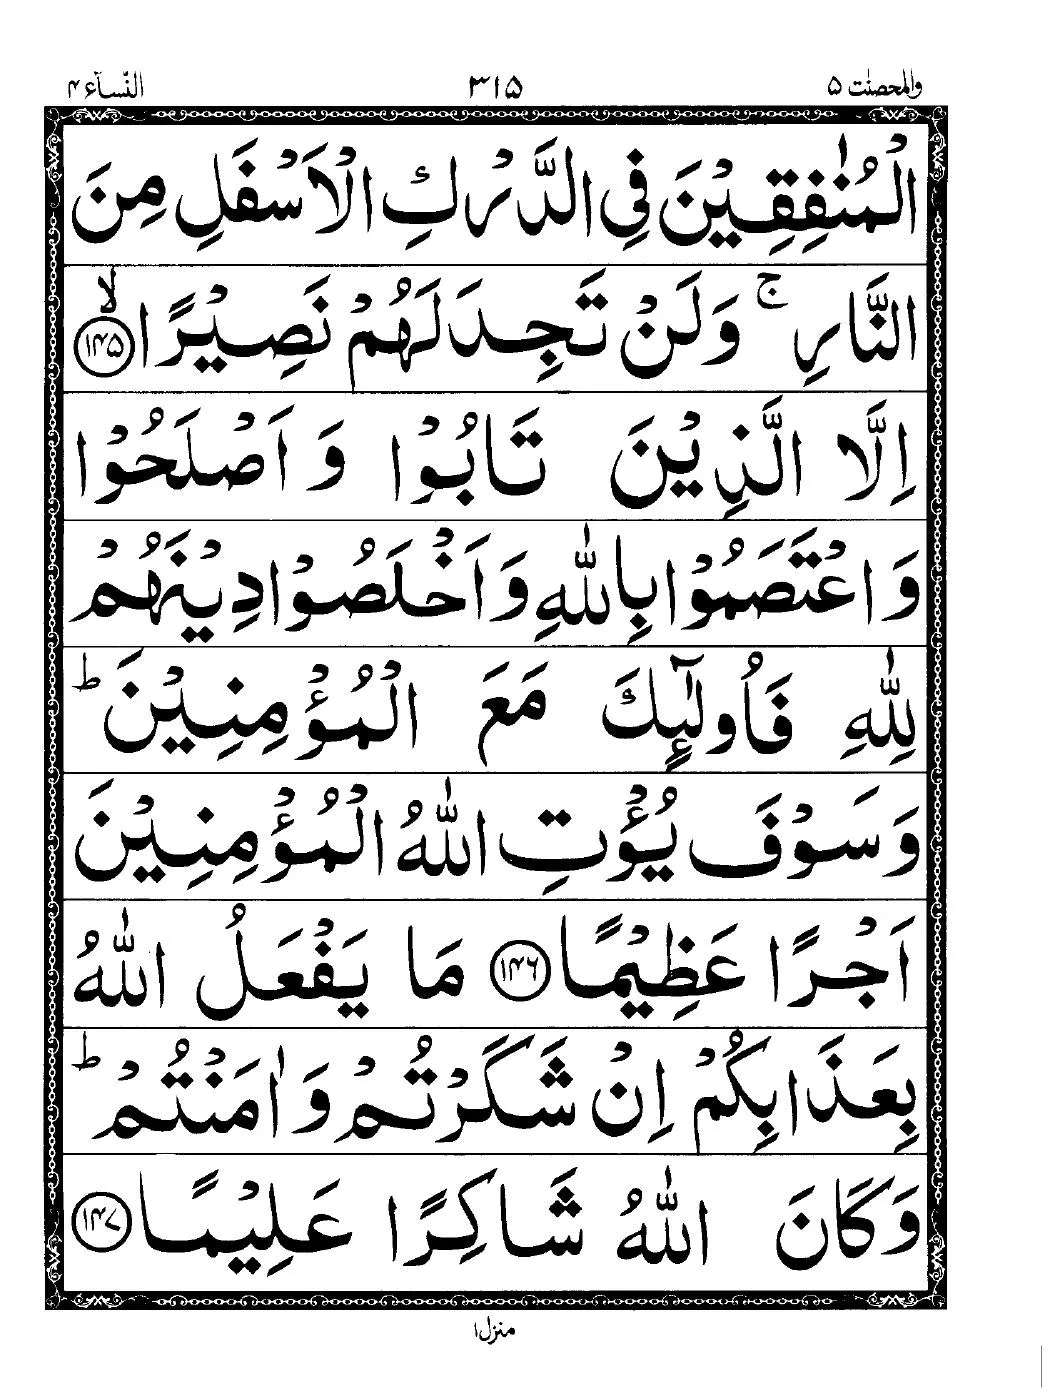 والمحصنٰت ۵ ۳۱۵ النّسآء ۴
الْمُنٰفِقِيْنَ فِي الدَّرْكِ الْاَسْفَلِ مِنَ
النَّارِ ۚ وَلَنْ تَجِدَ لَهُمْ نَصِيْرًا ۙ﴿۱۴۵﴾
اِلَّا الَّذِيْنَ تَابُوْا وَاَصْلَحُوْا
وَاعْتَصَمُوْا بِاللّٰهِ وَاَخْلَصُوْا دِيْنَهُمْ
لِلّٰهِ فَاُولٰٓئِكَ مَعَ الْمُؤْمِنِيْنَ ؕ
وَسَوْفَ يُؤْتِ اللّٰهُ الْمُؤْمِنِيْنَ
اَجْرًا عَظِيْمًا ﴿۱۴۶﴾ مَا يَفْعَلُ اللّٰهُ
بِعَذَابِكُمْ اِنْ شَكَرْتُمْ وَاٰمَنْتُمْ ؕ
وَكَانَ اللّٰهُ شَاكِرًا عَلِيْمًا ﴿۱۴۷﴾
منزل۱